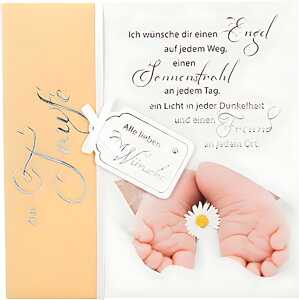 Ich wünsche dir einen Engel
auf jedem Weg,
einen
Sonnenstrahl
an jedem Tag,
ein Licht in jeder Dunkelheit
und einen Freund
an jedem Ort.
Alle lieben
Wünsche
zur
Taufe